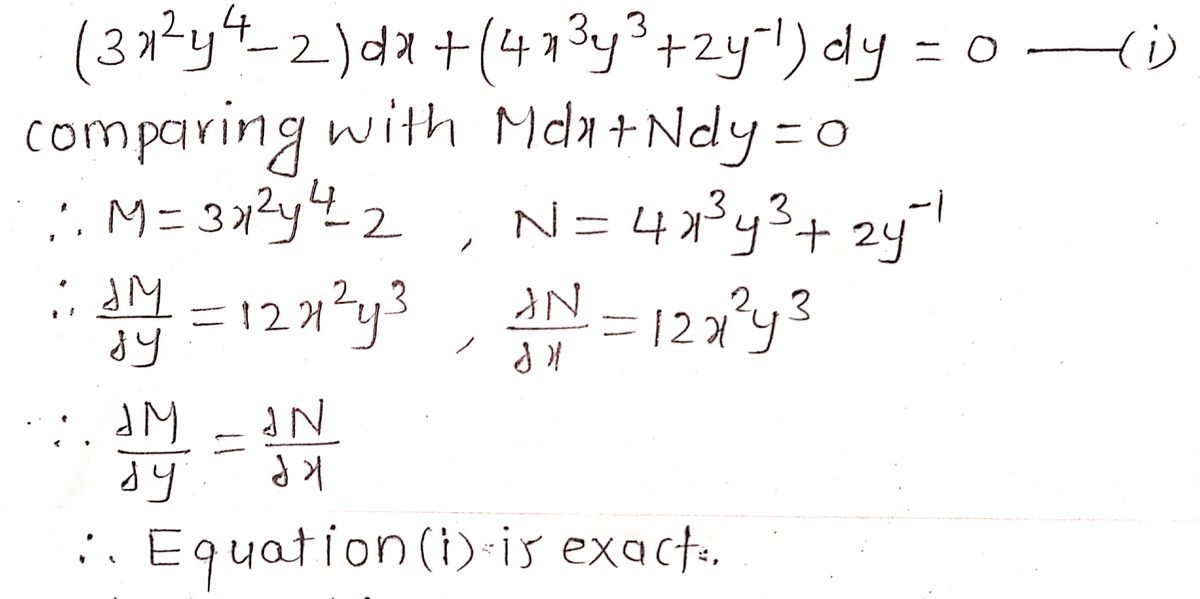 (3x²y⁴-2)dx+(4x³y³+2y⁻¹)dy = 0 —(i)
comparing with Mdx+Ndy=0
∴ M = 3x²y⁴-2 , N = 4x³y³+ 2y⁻¹
∴ ∂M/∂y = 12x²y³ , ∂N/∂x = 12x²y³
∴ ∂M/∂y = ∂N/∂x
∴ Equation(i) is exact.